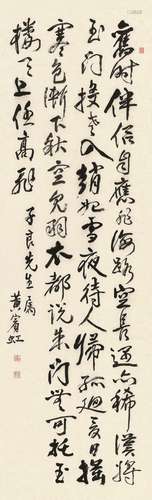 舊時伴侶自應非海路空長過亦稀漢將
玉門投老入趙妃雪夜待人歸孤迴夏日搖
寒色漸下秋空見羽衣都說朱門無可托玉
樓天上任高飛
子良先生屬
黃賓虹